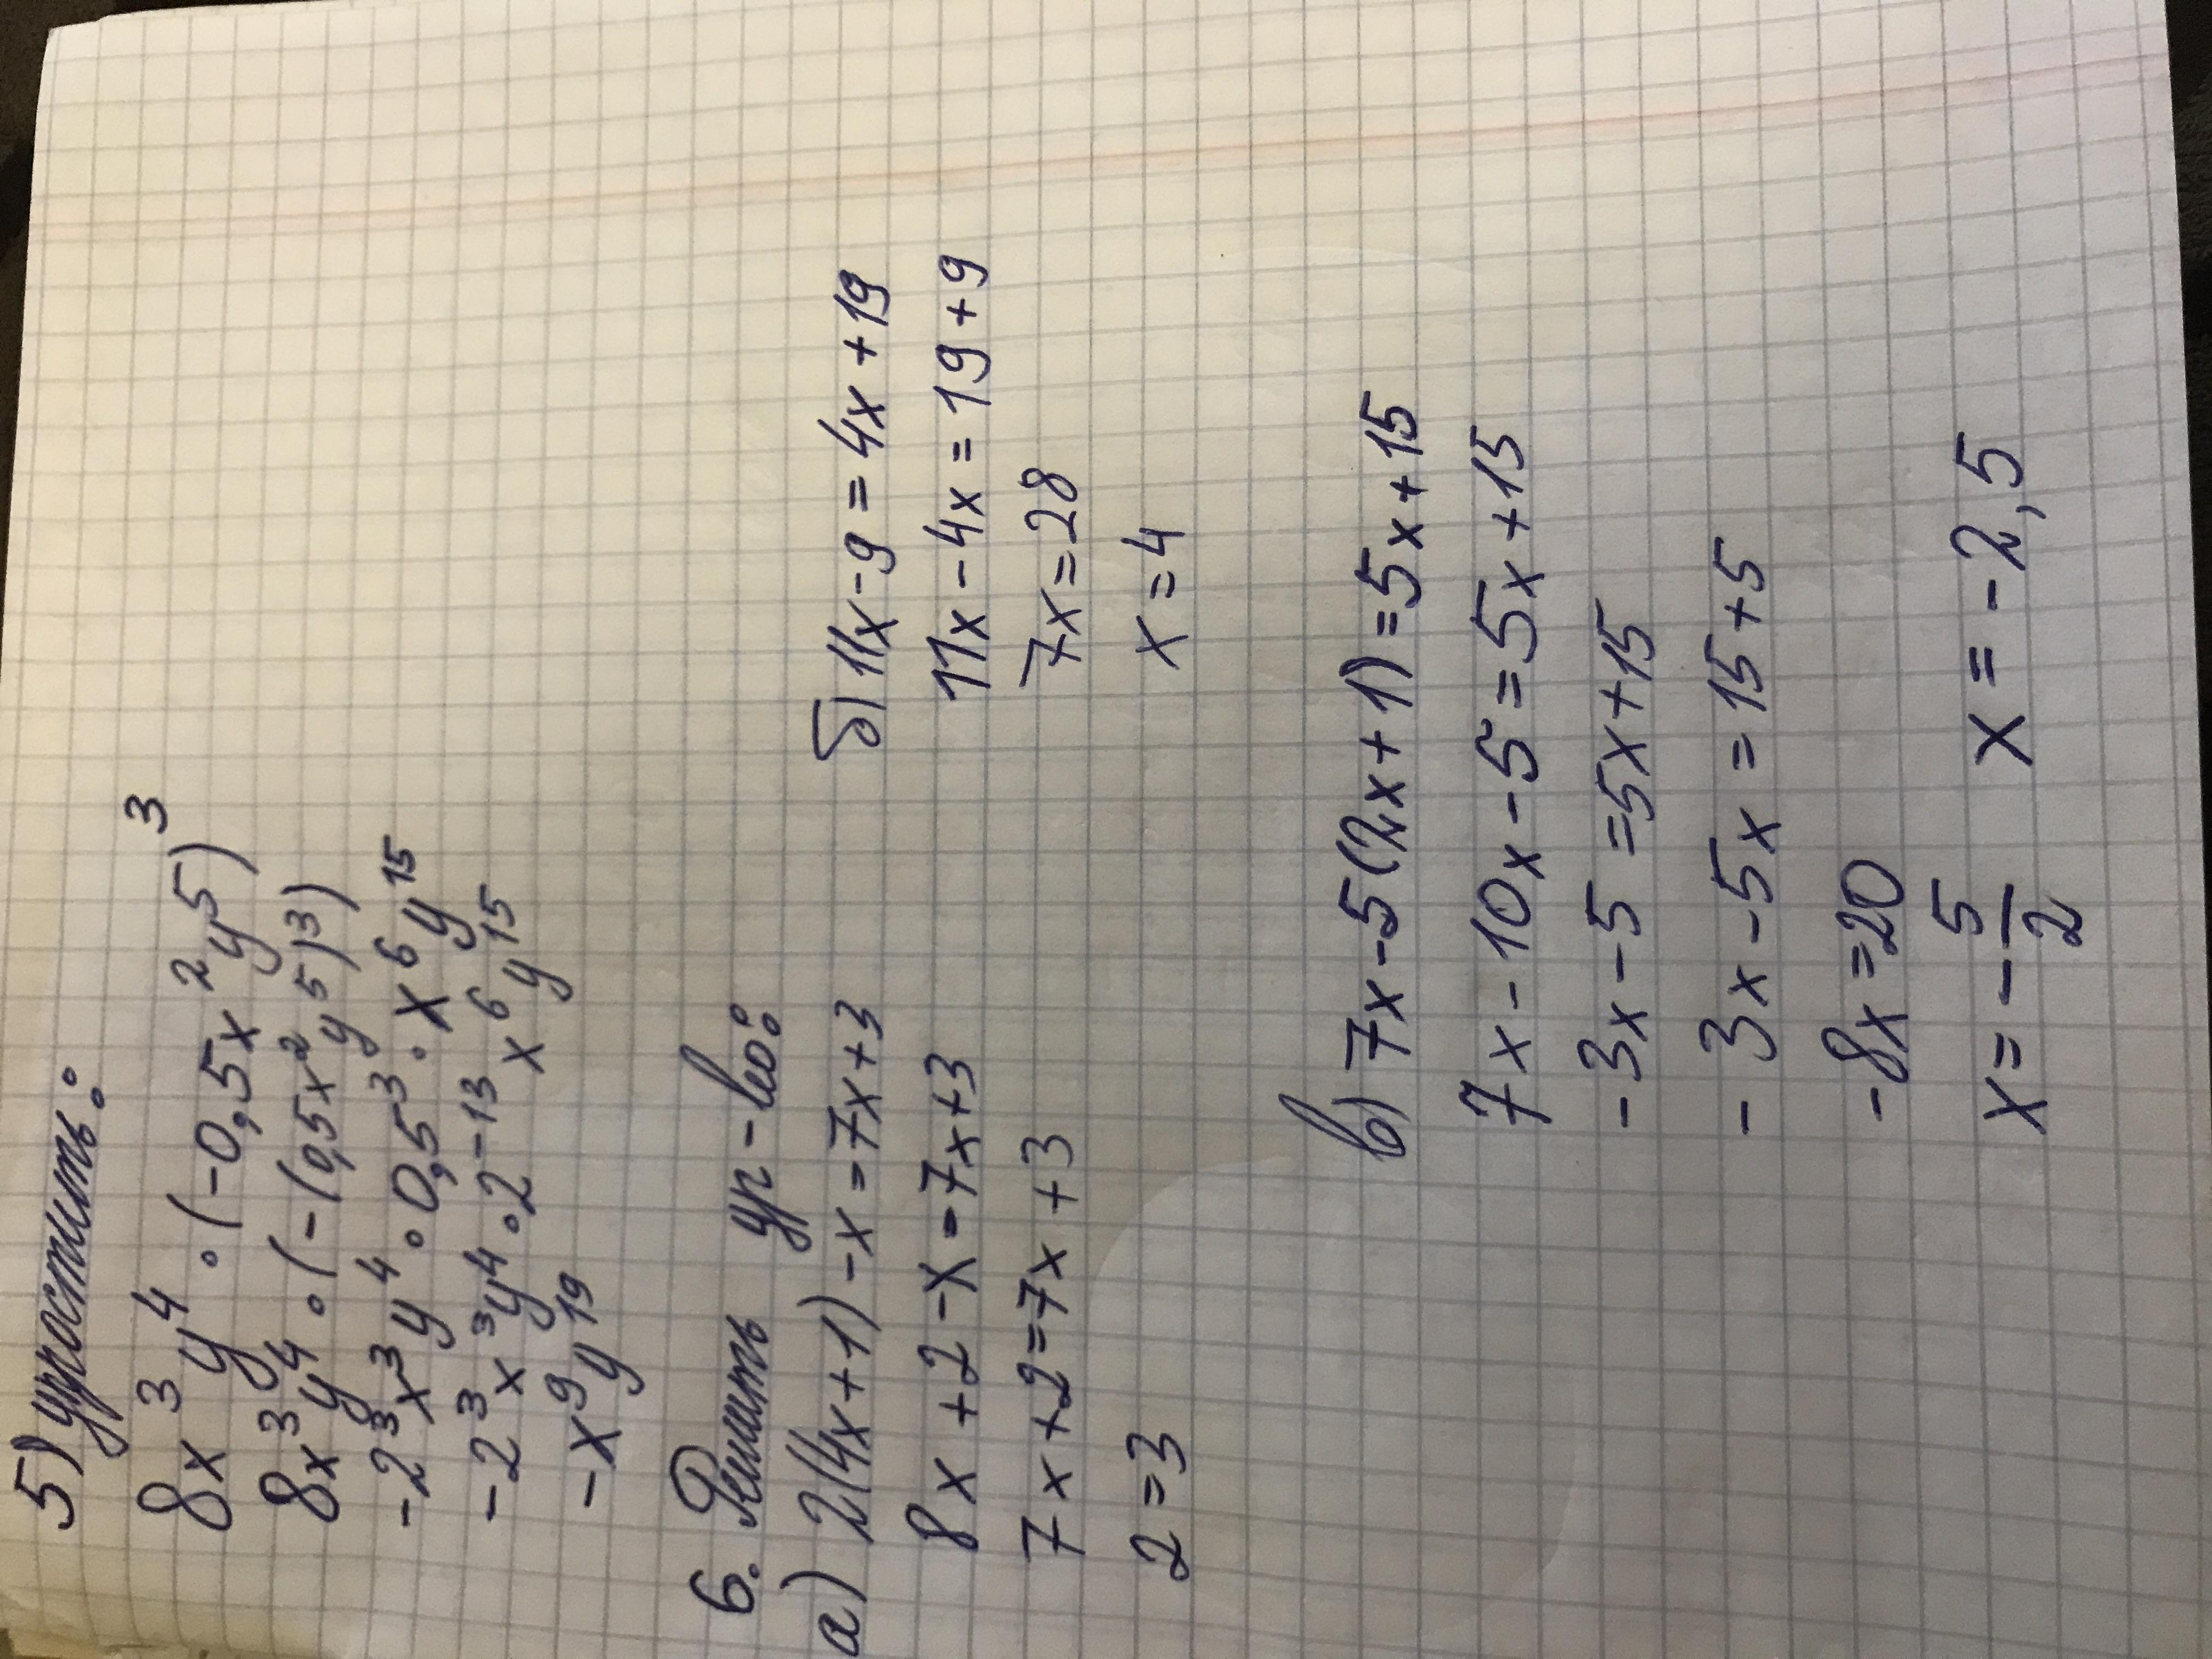 5) упростить:
8x³y⁴·(-0,5x²y⁵)³
8x³y⁴·(-(0,5x²y⁵)³)
-2³x³y⁴·0,5³·x⁶y¹⁵
-2³x³y⁴·2⁻¹³x⁶y¹⁵
-x⁹y¹⁹
6. Решить ур-ею:
а) 2(4x+1)-x=7x+3
8x+2-x=7x+3
7x+2=7x+3
2=3
б) 11x-9=4x+19
11x-4x=19+9
7x=28
x=4
в) 7x-5(2x+1)=5x+15
7x-10x-5=5x+15
-3x-5=5x+15
-3x-5x=15+5
-8x=20
x=-5/2 x=-2,5